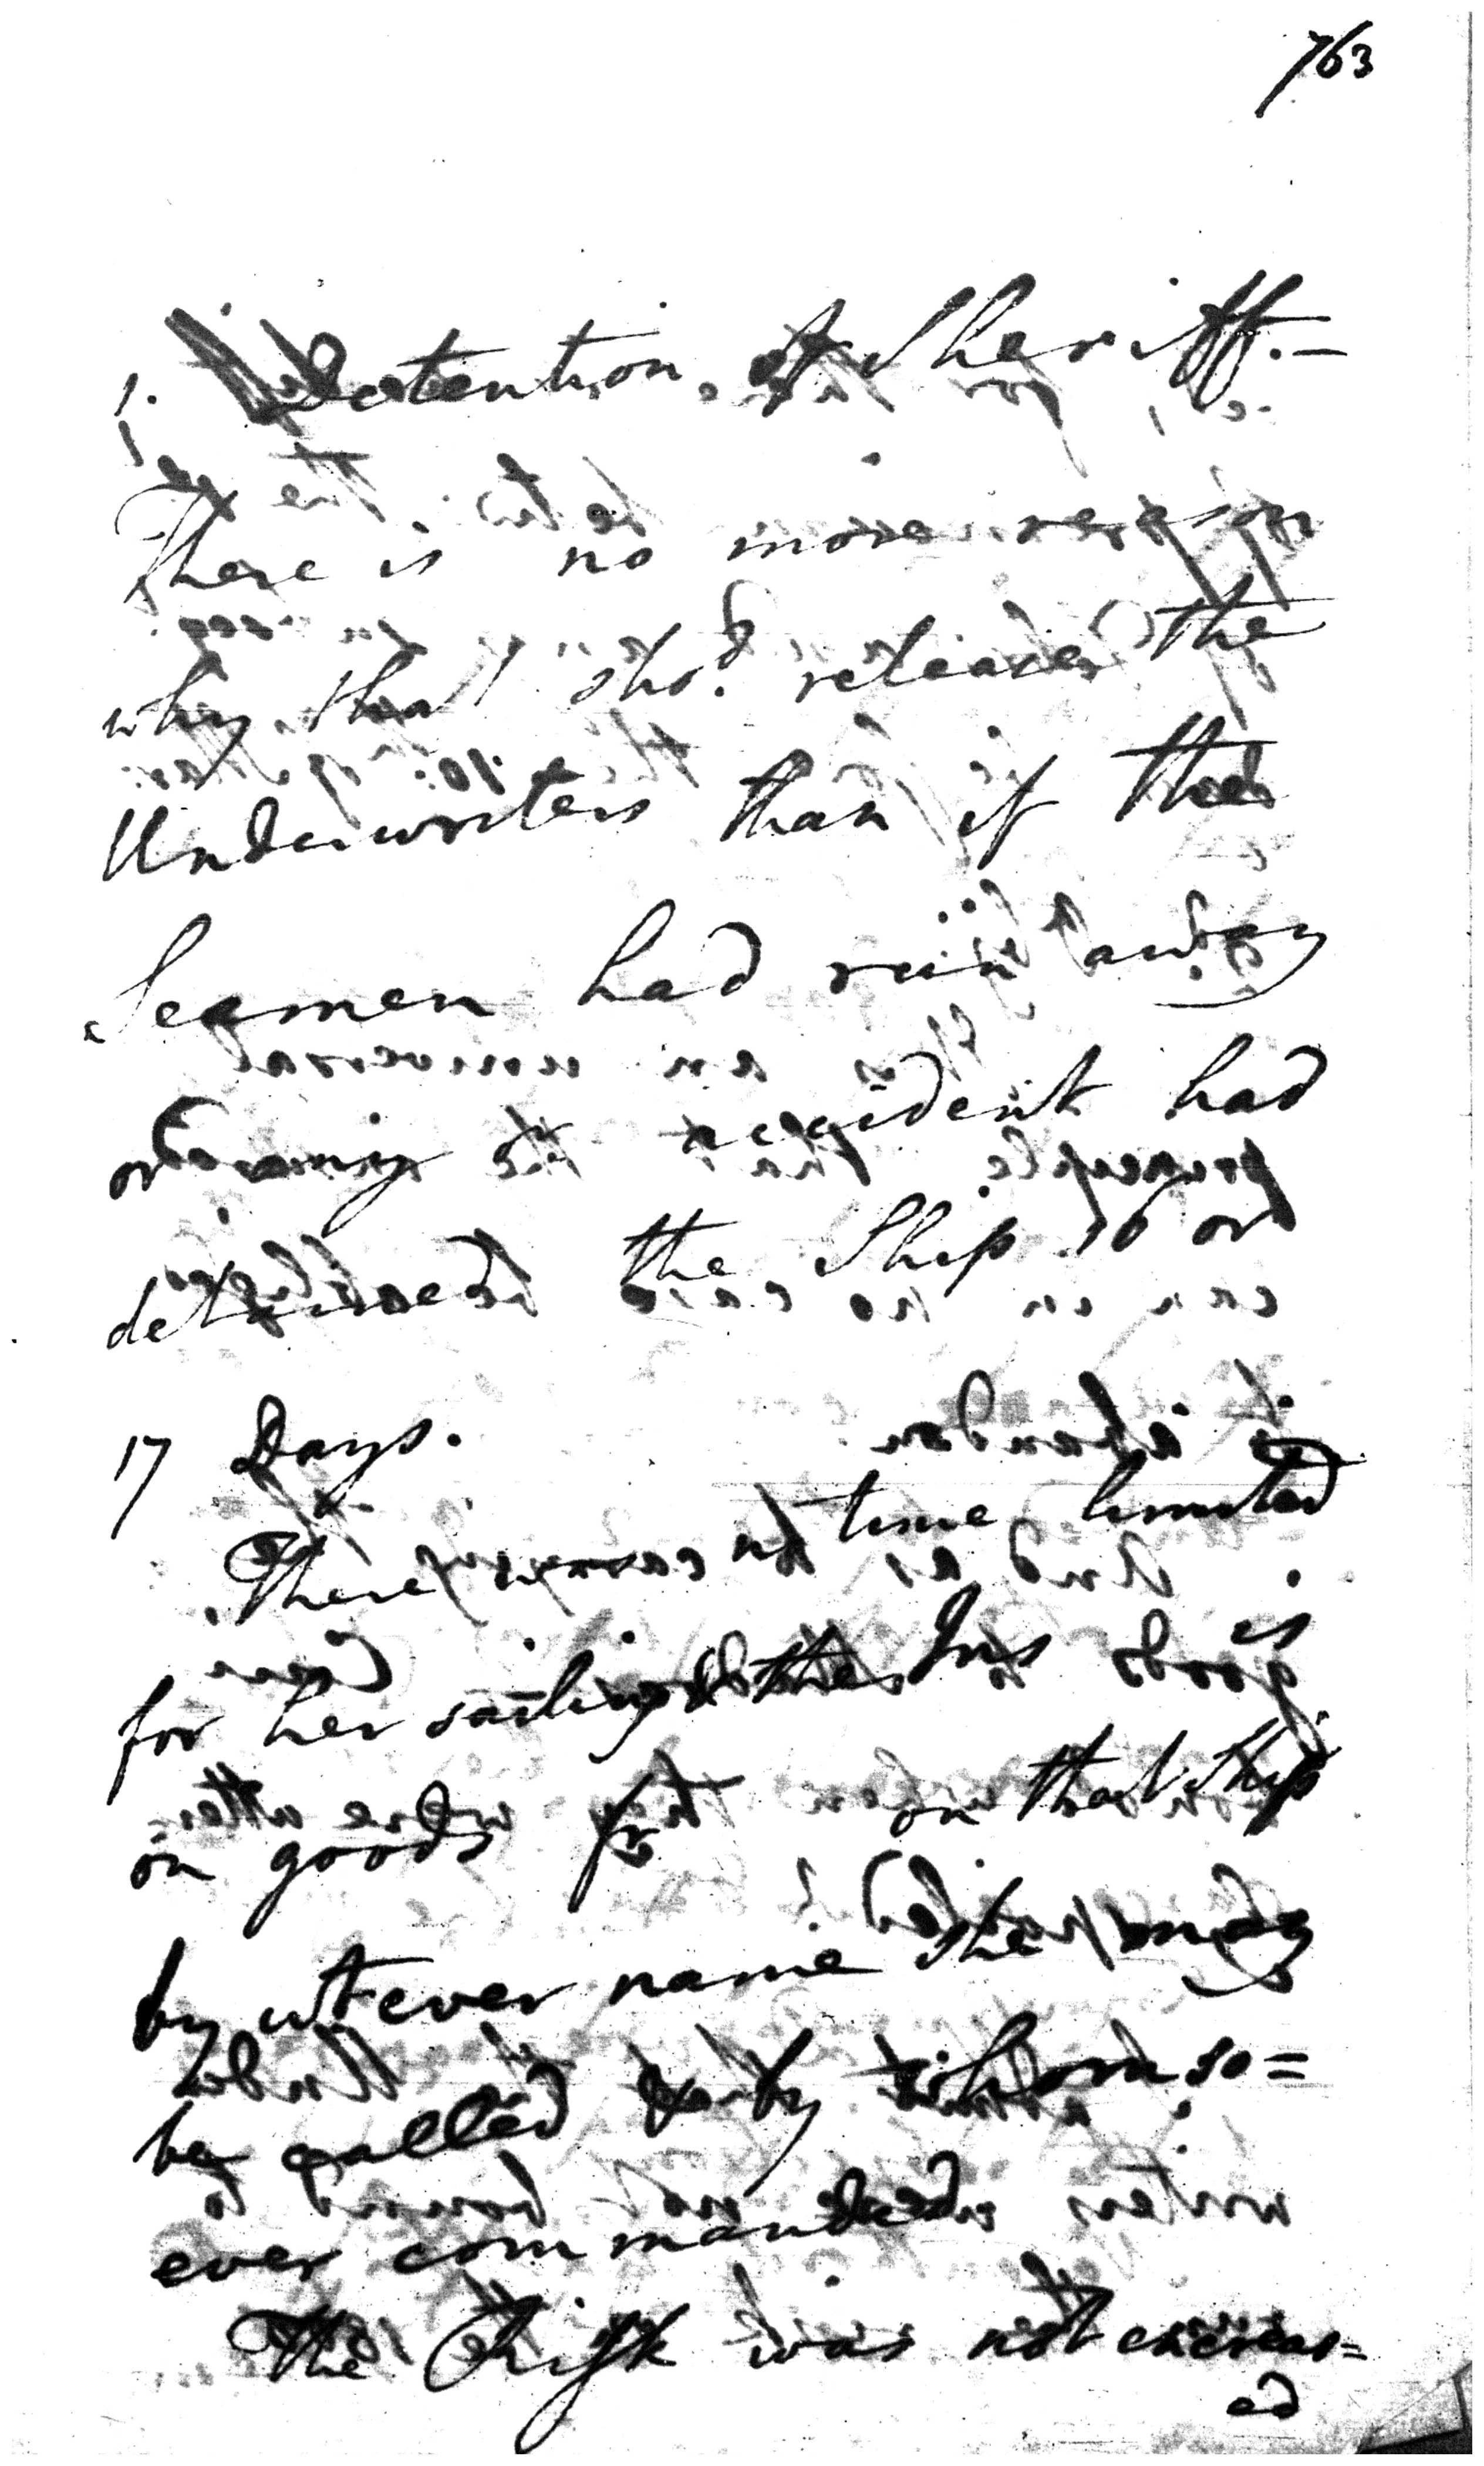 763
1. Detention of Sheriff.—
There is no more reason
why that sho.d release the
Underwriters than if the
Seamen had run away
or any accident had
detained the Ship 16 or
17 Days.
There was no time limited
for her sailing & the Ins is
on goods on that Ship
by wtever name she may
be called & by whom so=
ever commanded
The Risk was not encreas=
ed